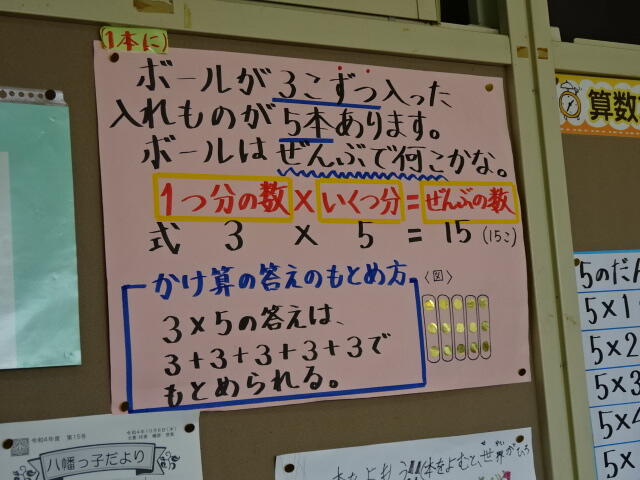 1本に
ボールが3こずつ入った
入れものが5本あります。
ボールはぜんぶで何こかな。
1つ分の数×いくつ分=ぜんぶの数
式 3 × 5 = 15 (15こ)
かけ算の答えのもとめ方
3×5の答えは、
3+3+3+3+3で
もとめられる。
〈図〉
算数
5のだん
5×1
5×2
5×3
5×4
5×
令和4年度 第15号
八幡っ子だより